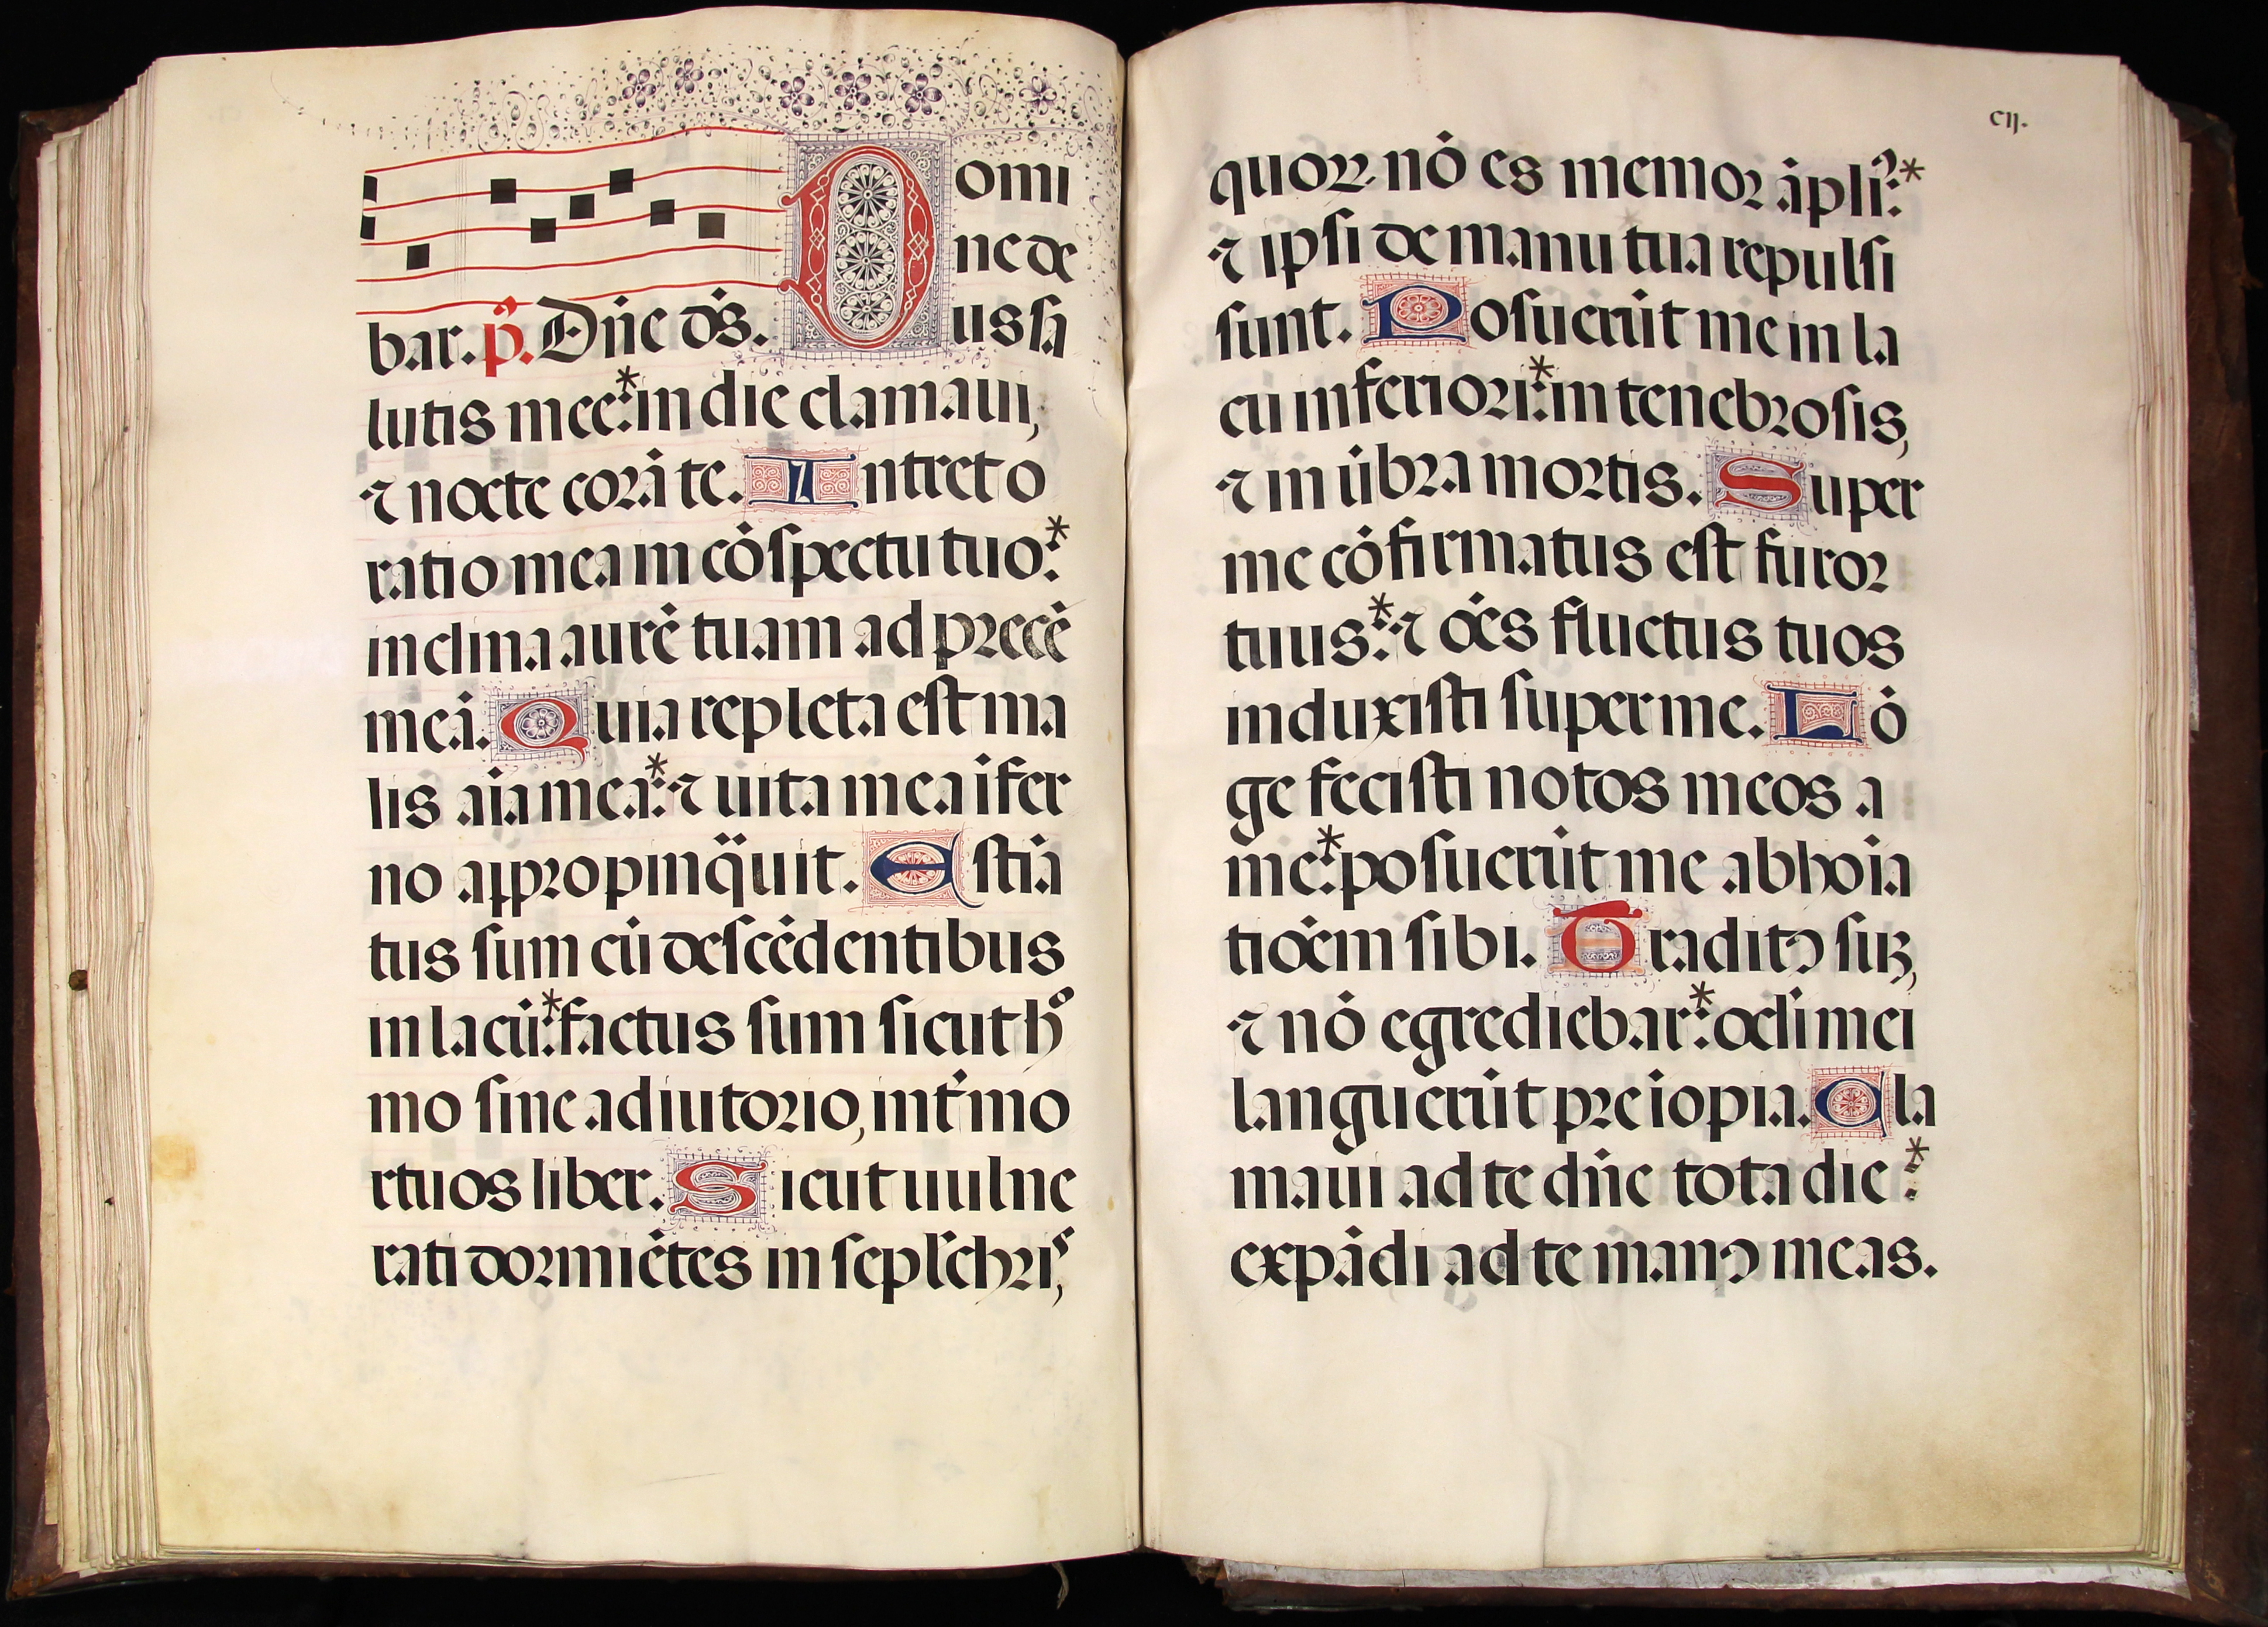 Domi
ne de
bar. p̃. Dñe ds̃. us sa
lutis mee:* in die clamaui,
⁊ nocte corā te. Intret o
ratio mea in cōspectu tuo:*
inclina aurē tuam ad precē
meā. Quia repleta est ma
lis aīa mea:* ⁊ uita mea īfer
no appropinq̈uit. Estīa
tus sum cū descēdentibus
in lacū:* factus sum sicut hº
mo sine adiutorio, int̃ mo
rtuos liber. Sicut uulne
rati dormiētes in sepl̃chriˢ,
cij.
quoꝝ nō es memor āpliꝰ:*
⁊ ipsi de manu tua repulsi
sunt. Posuerūt me in la
cu inferiori:* in tenebrosis,
⁊ in ūbra mortis. Super
me cōfirmatus est furor
tuus:* ⁊ oēs fluctus tuos
induxisti super me. Lō
ge fecisti notos meos a
me:* posuerūt me abhoīa
tioēm sibi. Traditꝰ suꝫ,
⁊ nō egrediebar:* ocl̃i mei
languerūt pre īopia. Cla
maui ad te dñe tota die:*
expādi ad te manꝰ meas.